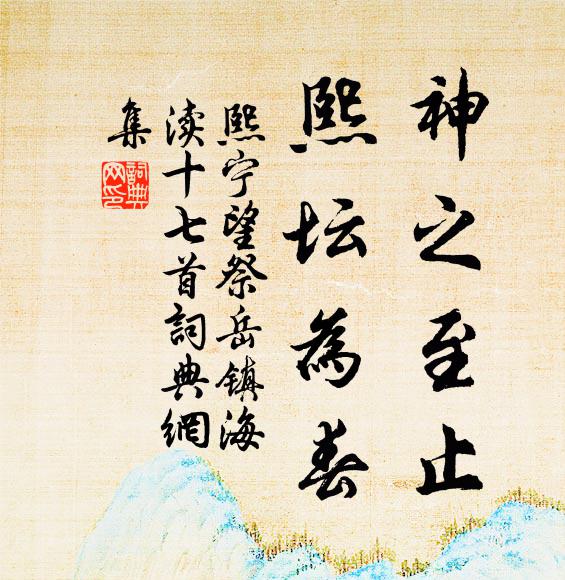 神之至止
熙坛為春
熙宁望祭岳镇海
渎十七首詞典網
集
詞典
网印